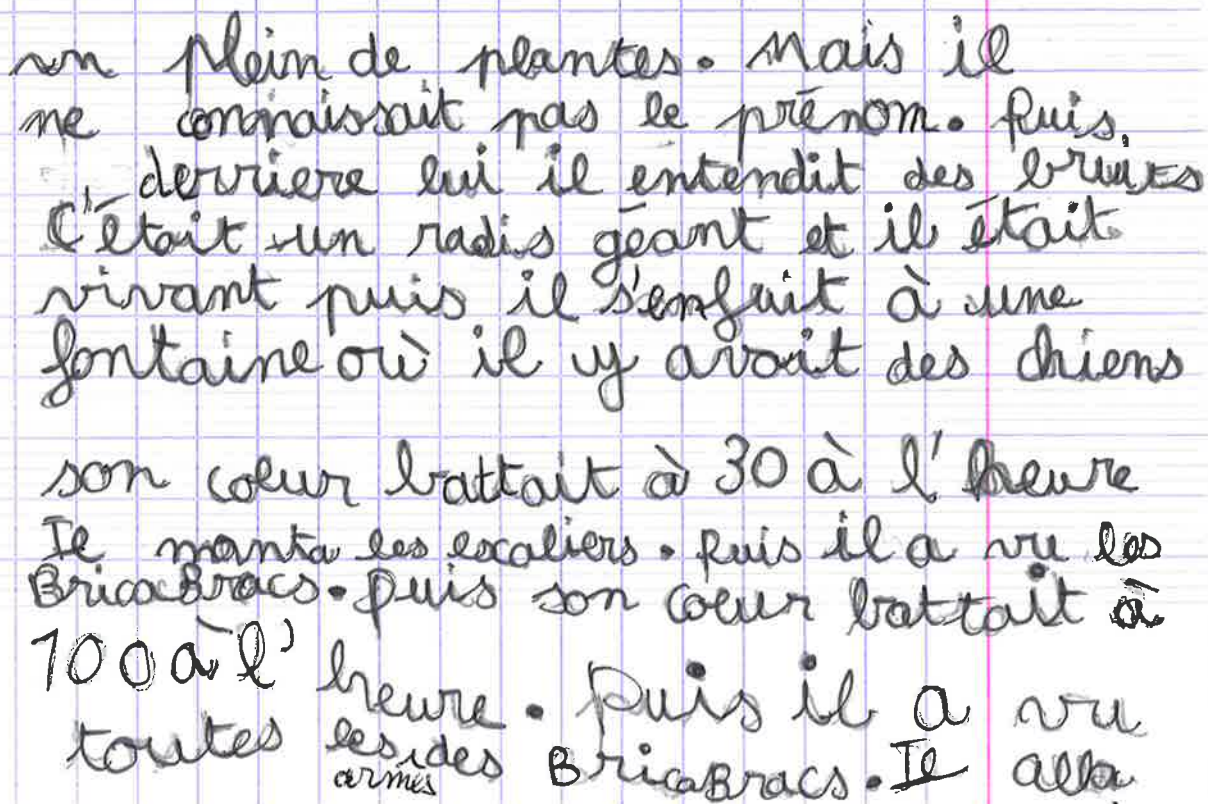 un plein de plantes. Mais il
ne connaissait pas le prénom. Puis
derriere lui il entendit des bruits
C'était un radis géant et il était
vivant puis il s'enfuit à une
fontaine où il y avait des chiens
son coeur battait à 30 à l'heure
Il monta les escaliers. Puis il a vu les
BricaBracs. Puis son coeur battait à
100 à l'
heure. Puis il a vu
toutes les des BricaBracs. Il alla
armes